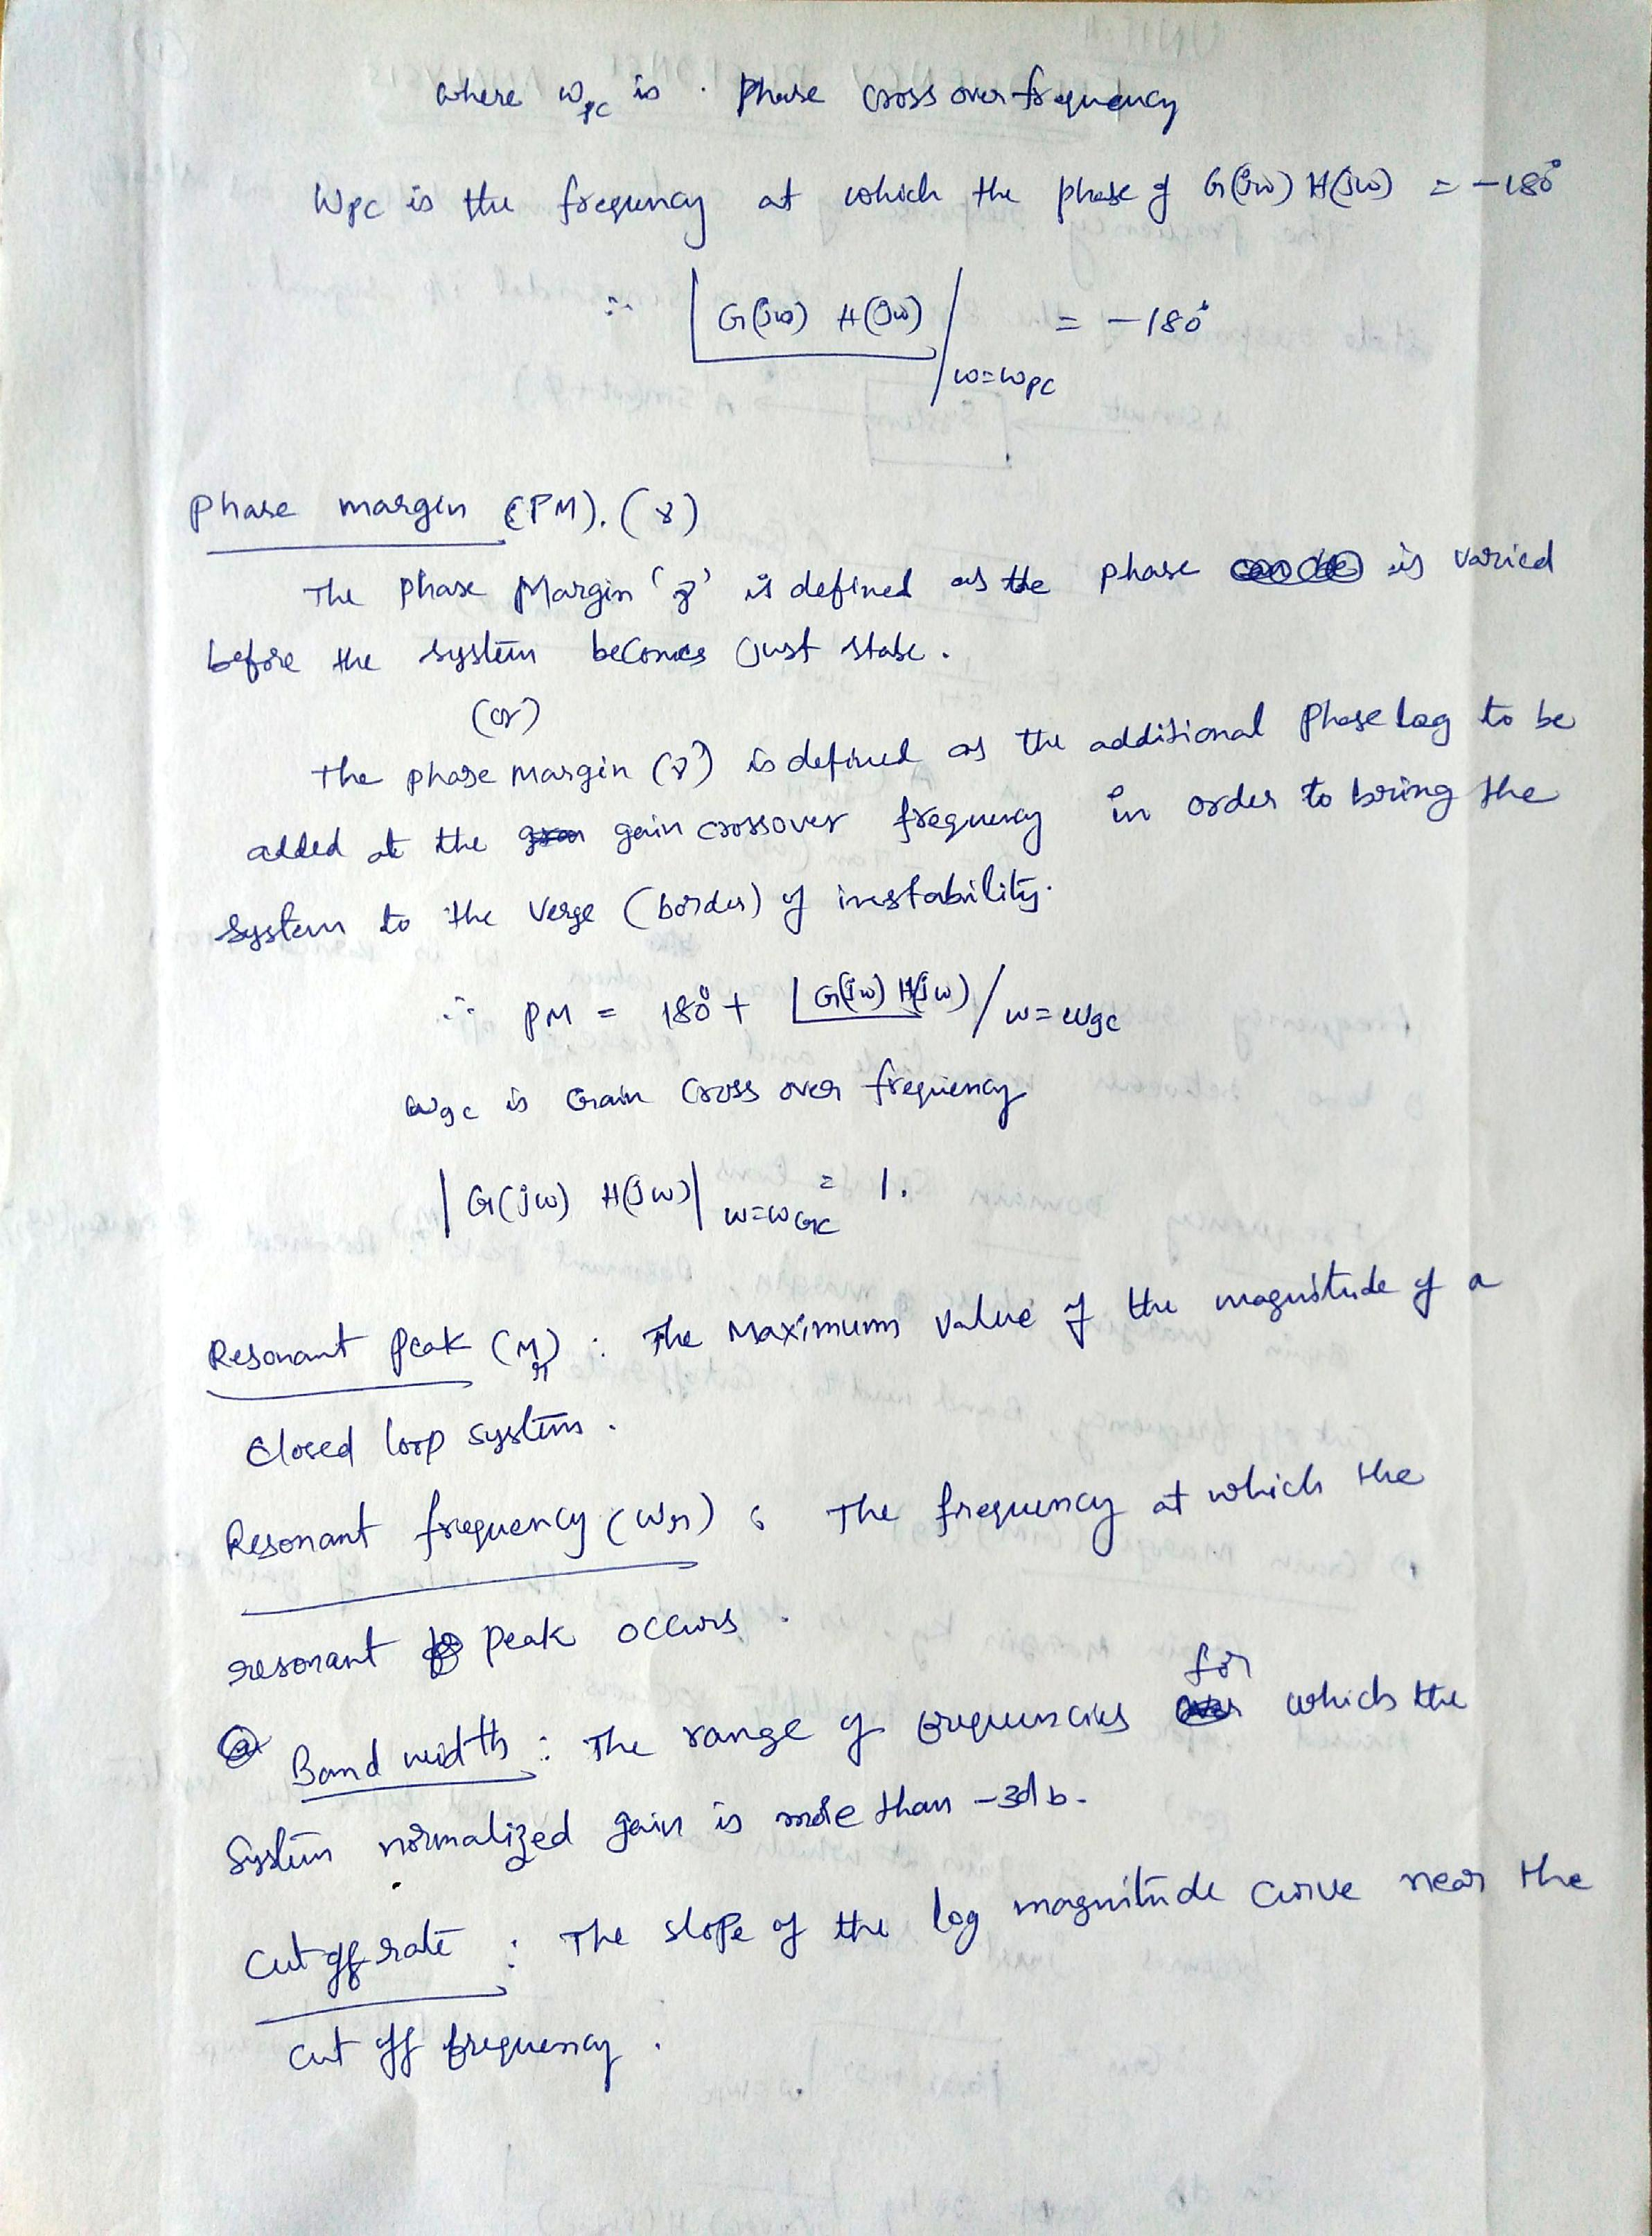 where ωpc is . Phase cross over frequency
Wpc is the frequency at which the phase of G(jω) H(jω) = -180°
∴ ∠G(jω) H(jω) / ω=ωpc = -180°
Phase margin (PM). (γ)
The Phase Margin 'γ' is defined as the phase is varied
before the system becomes just stabe.
(or)
The phase margin (γ) is defined as the additional Phase lag to be
added at the gain crossover frequency in order to bring the
System to the Verge (border) of instability.
∴ PM = 180° + ∠G(jω) H(jω) / ω=ωgc
ωgc is Gain Cross over frequency
|G(jω) H(jω)| ω=ωGC = 1.
Resonant Peak (Mr) : The Maximum Value of the magnitude of a
Closed loop system .
Resonant frequency (ωr) : The frequency at which the
resonant Peak occurs .
for
Band width : The range of frequencies which the
System normalized gain is more than -3db.
Cut off rate : The slope of the log magnitude curve near the
cut off frequency .